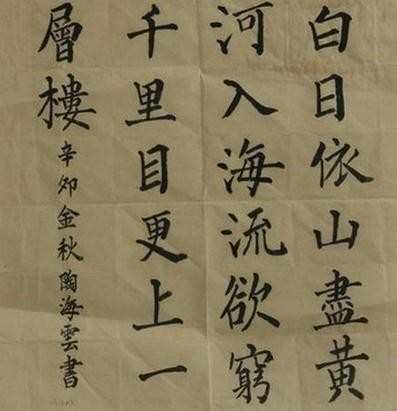 白日依山盡黃
河入海流欲窮
千里目更上一
層樓
辛卯金秋陶海雲書